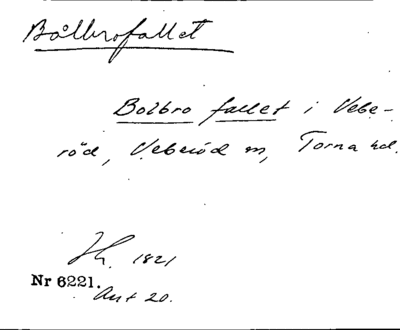 Bålbrofallet
Bolbro fallet i Vebe-
röd, Veberöd sn, Torna hd.
Jh. 1821
Nr 6221.
Ant 20.